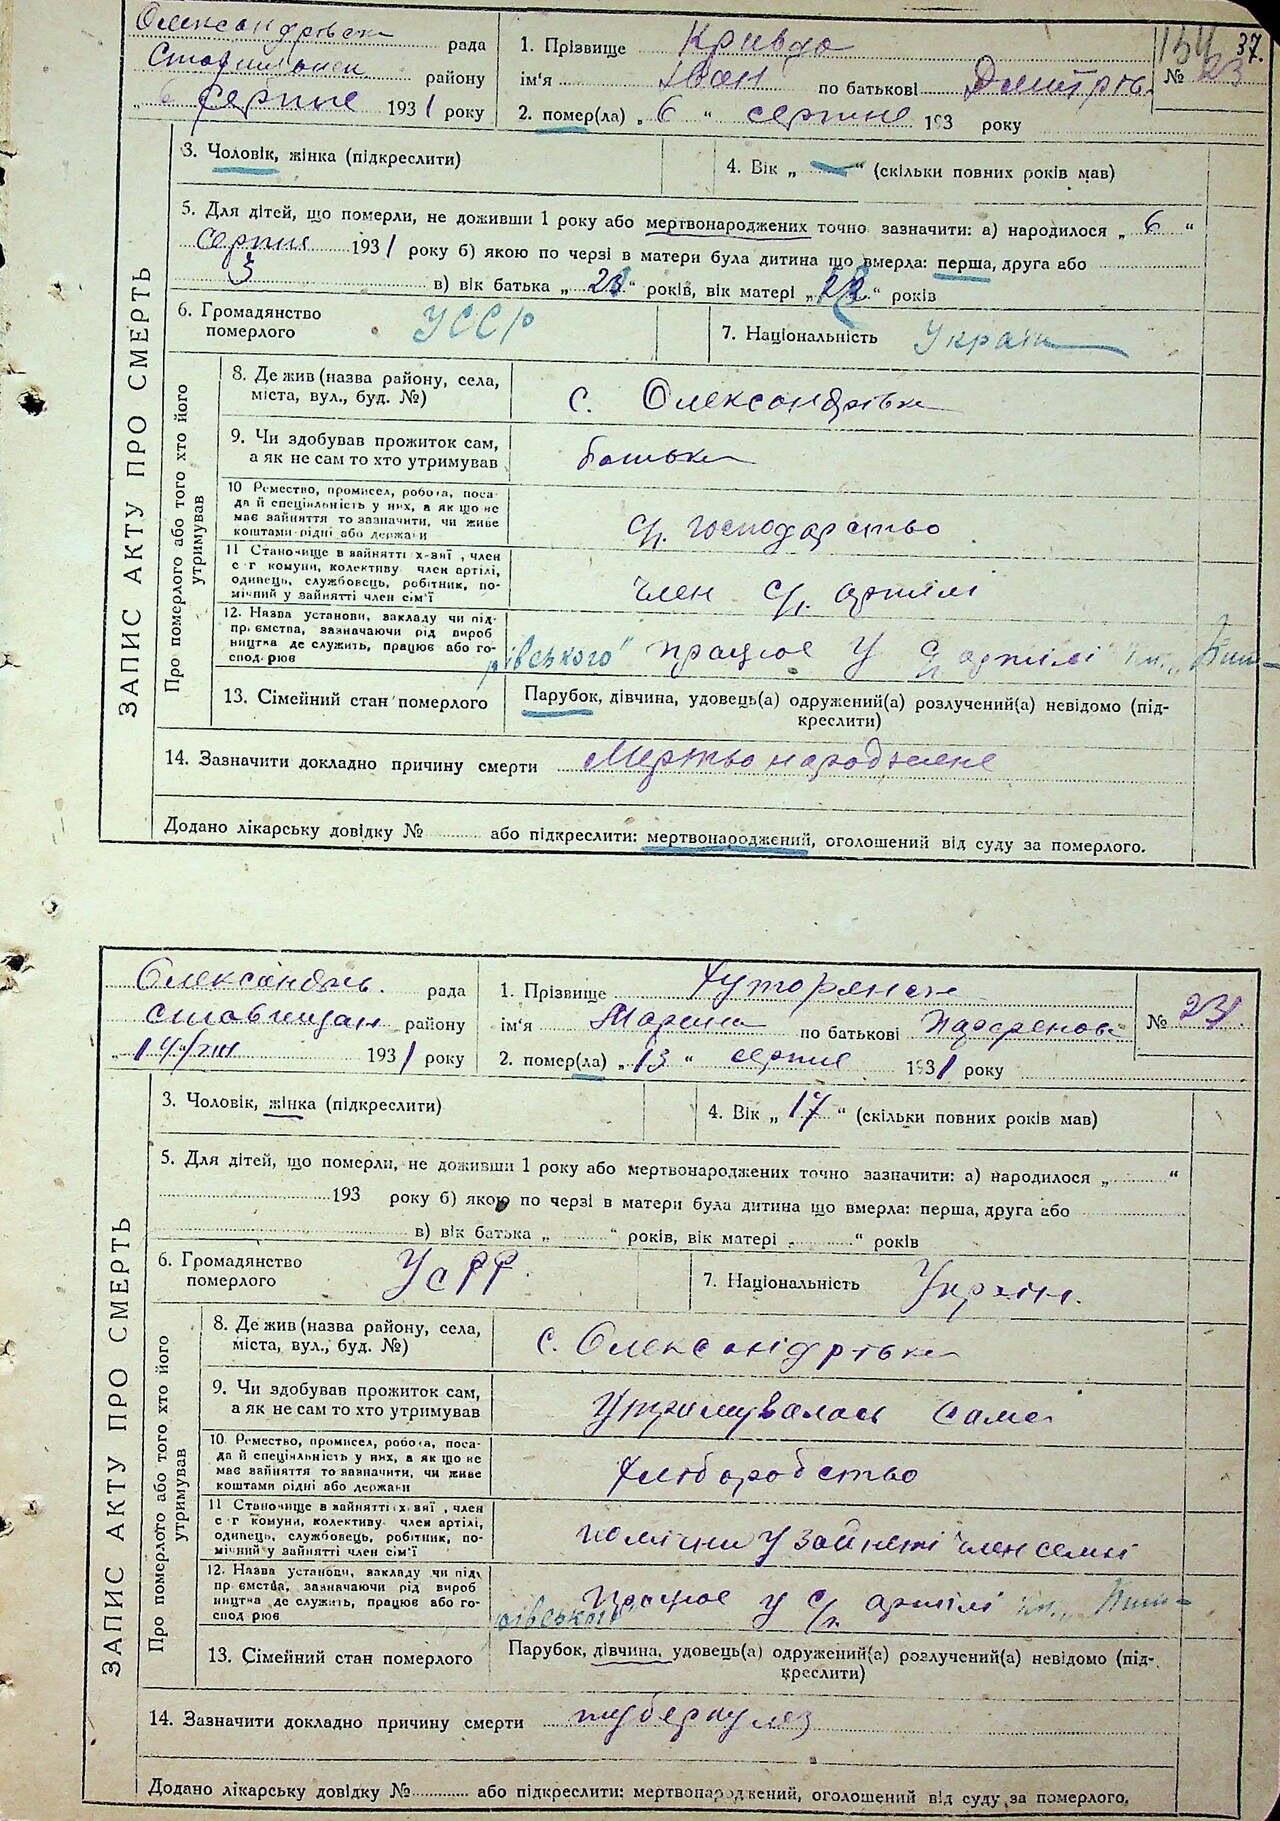 Олександрівськ рада 1. Прізвище Кривда 37.
району ім'я Іван по батькові Дмитрів № 23
„6 серпня 1931 року 2. помер(ла) „6“ серпня 193 року
ЗАПИС АКТУ ПРО СМЕРТЬ
3. Чоловік, жінка (підкреслити) 4. Вік „ — “ (скільки повних років мав)
5. Для дітей, що померли, не доживши 1 року або мертвонароджених точно зазначити: а) народилося „ 6 “
серпня 1931 року б) якою по черзі в матери була дитина що вмерла: перша, друга або
3 в) вік батька „ “ років, вік матері „ “ років
6. Громадянство УССР 7. Національність Україн
померлого
Про померлого або того хто його утримував
8. Де жив (назва району, села,
міста, вул., буд. №) с. Олександрівка
9. Чи здобував прожиток сам,
а як не сам то хто утримував батьки
10 Ремество, промисел, робота, поса-
да й спеціяльність у них, а як що не
має зайняття то зазначити, чи живе
коштами рідні або держави с/г. господарство
11 Становище в зайнятті х-зяї, член
с-г комуни, колективу член артілі,
одинець, службовець, робітник, по-
мічний у зайнятті член сім'ї член с/г. артілі
12. Назва установи, закладу чи під-
приємства, зазначаючи рід вироб
ництва де служить, працює або го-
сподрює працює у с/г артілі ім. „
рівського“
13. Сімейний стан померлого Парубок, дівчина, удовець(а) одружений(а) розлучений(а) невідомо (під-
креслити)
14. Зазначити докладно причину смерти Мертвонароджене
Додано лікарську довідку № або підкреслити: мертвонароджений, оголошений від суду за померлого.
Олександрів. рада 1. Прізвище Хуторянськ
ставищан району ім'я Марина по батькові Парфенов №
„14“/VIII 1931 року 2. помер(ла) „13“ серпня 1931 року
ЗАПИС АКТУ ПРО СМЕРТЬ
3. Чоловік, жінка (підкреслити) 4. Вік „ 17 “ (скільки повних років мав)
5. Для дітей, що померли, не доживши 1 року або мертвонароджених точно зазначити: а) народилося „ “
193 року б) якою по черзі в матери була дитина що вмерла: перша, друга або
в) вік батька „ “ років, вік матері „ “ років
6. Громадянство УСРР. 7. Національність Україн.
померлого
Про померлого або того хто його утримував
8. Де жив (назва району, села,
міста, вул., буд. №) с. Олександрівка
9. Чи здобував прожиток сам,
а як не сам то хто утримував Утримувалась сама
10. Ремество, промисел, робота, поса-
да й спеціяльність у них, а як що не
має зайняття то зазначити, чи живе
коштами рідні або держави Хліборобство
11 Становище в зайнятті х-зяї, член
с-г комуни, колективу член артілі,
одинець, службовець, робітник, по-
мічний у зайнятті член сім'ї у зайнеті член семні
12. Назва установи, закладу чи під-
приємства, зазначаючи рід вироб
ництва де служить, працює або го-
спод рює працює у с/г. артілі ім. „
рівського“
13. Сімейний стан померлого Парубок, дівчина, удовець(а) одружений(а) розлучений(а) невідомо (під-
креслити)
14. Зазначити докладно причину смерти туберкулез
Додано лікарську довідку № або підкреслити: мертвонароджений, оголошений від суду за померлого.